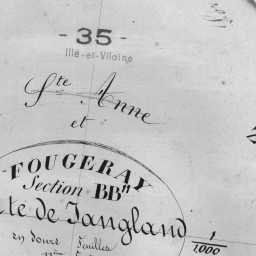 - 35 -
Ille-et-Vilaine
Ste Anne
et
FOUGERAY
Section BBn
te de Tangland
en Jours Feuilles
1/1,000